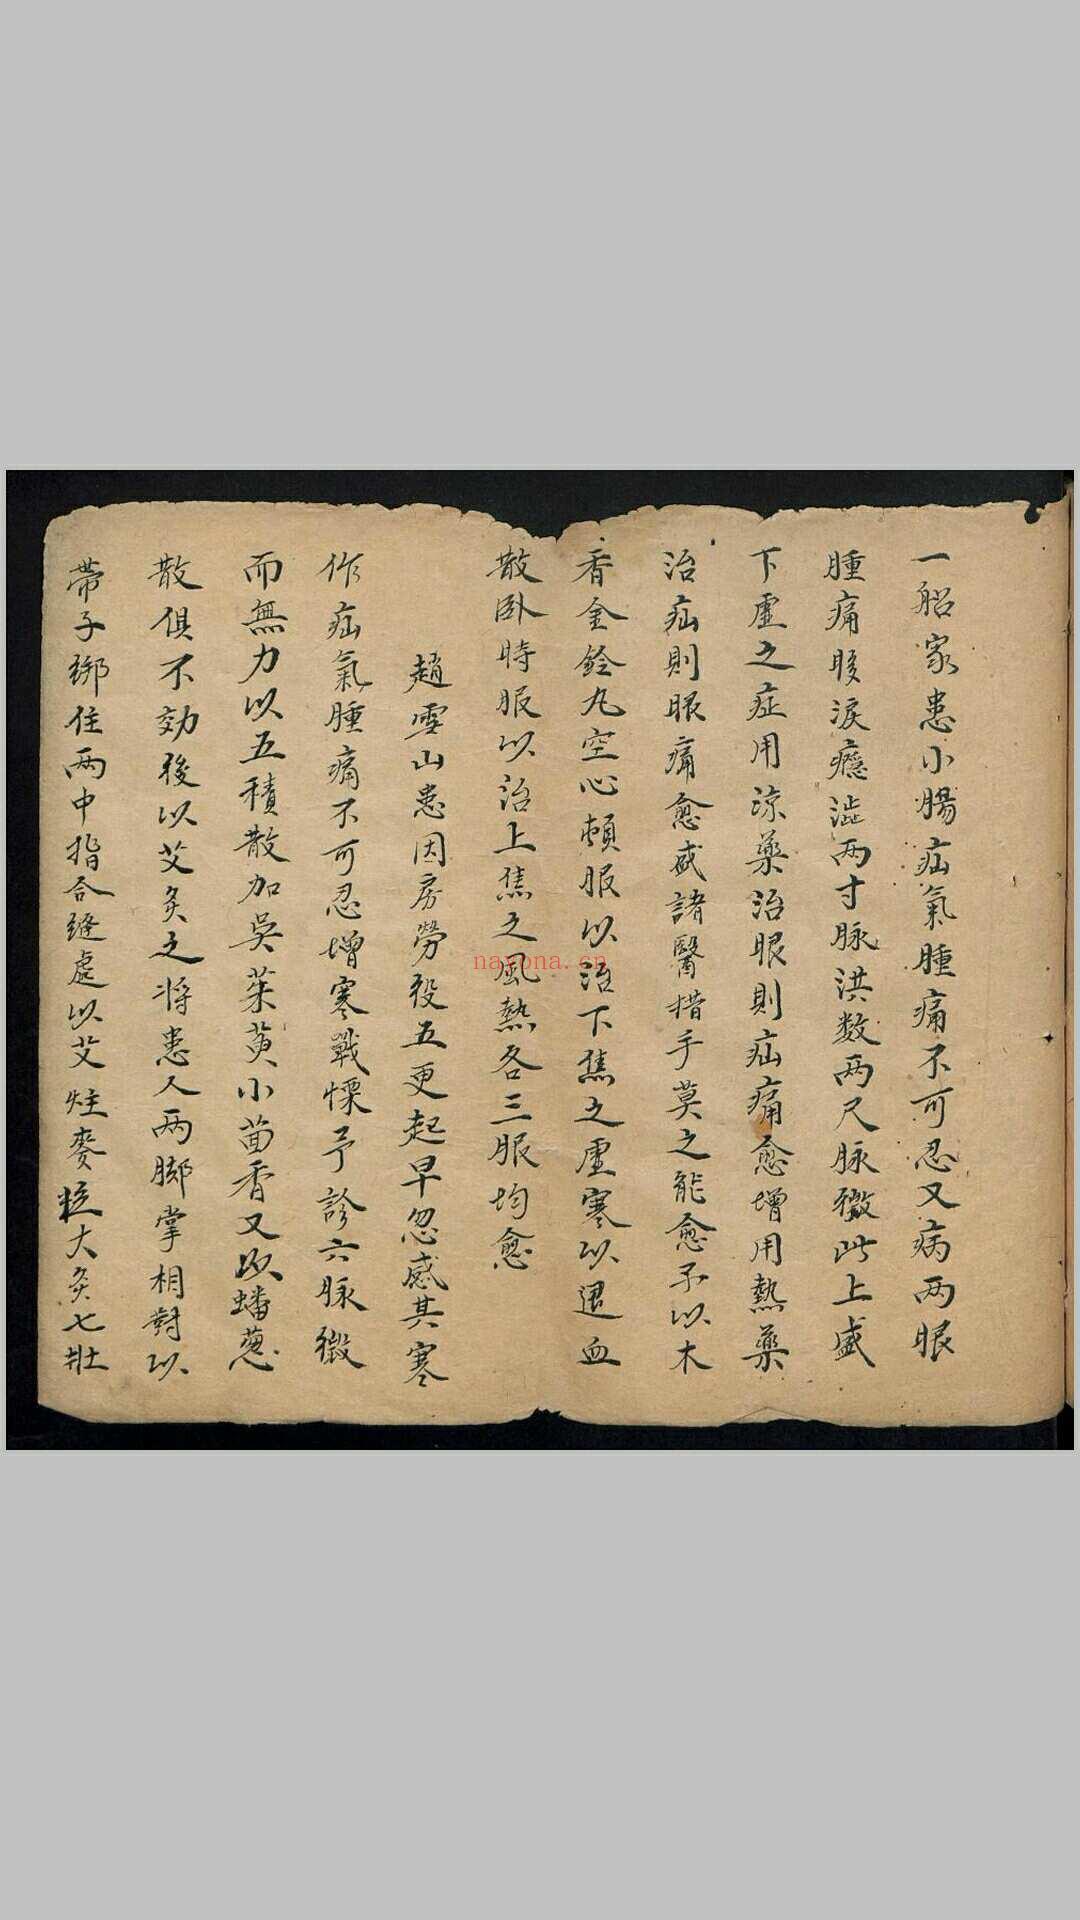 一船家患小腸疝氣腫痛不可忍又病兩眼
腫痛眵淚癮澁兩寸脉洪数兩尺脉微此上盛
下虛之症用凉藥治眼則疝痛愈增用熱藥
治疝則眼痛愈盛諸醫措手莫之能愈予以木
香金鈴丸空心頓服以治下焦之虛寒以退血
散卧時服以治上焦之風熱各三服均愈
趙雪山患因房勞役五更起早忽感其寒
作疝氣腫痛不可忍增寒戰慄予診六脉微
而無力以五積散加吳茱萸小茴香又以蟠葱
散俱不効後以艾灸之將患人兩脚掌相對以
帶子綁住兩中指合縫處以艾炷麥粒大灸七壯
nayona.cn